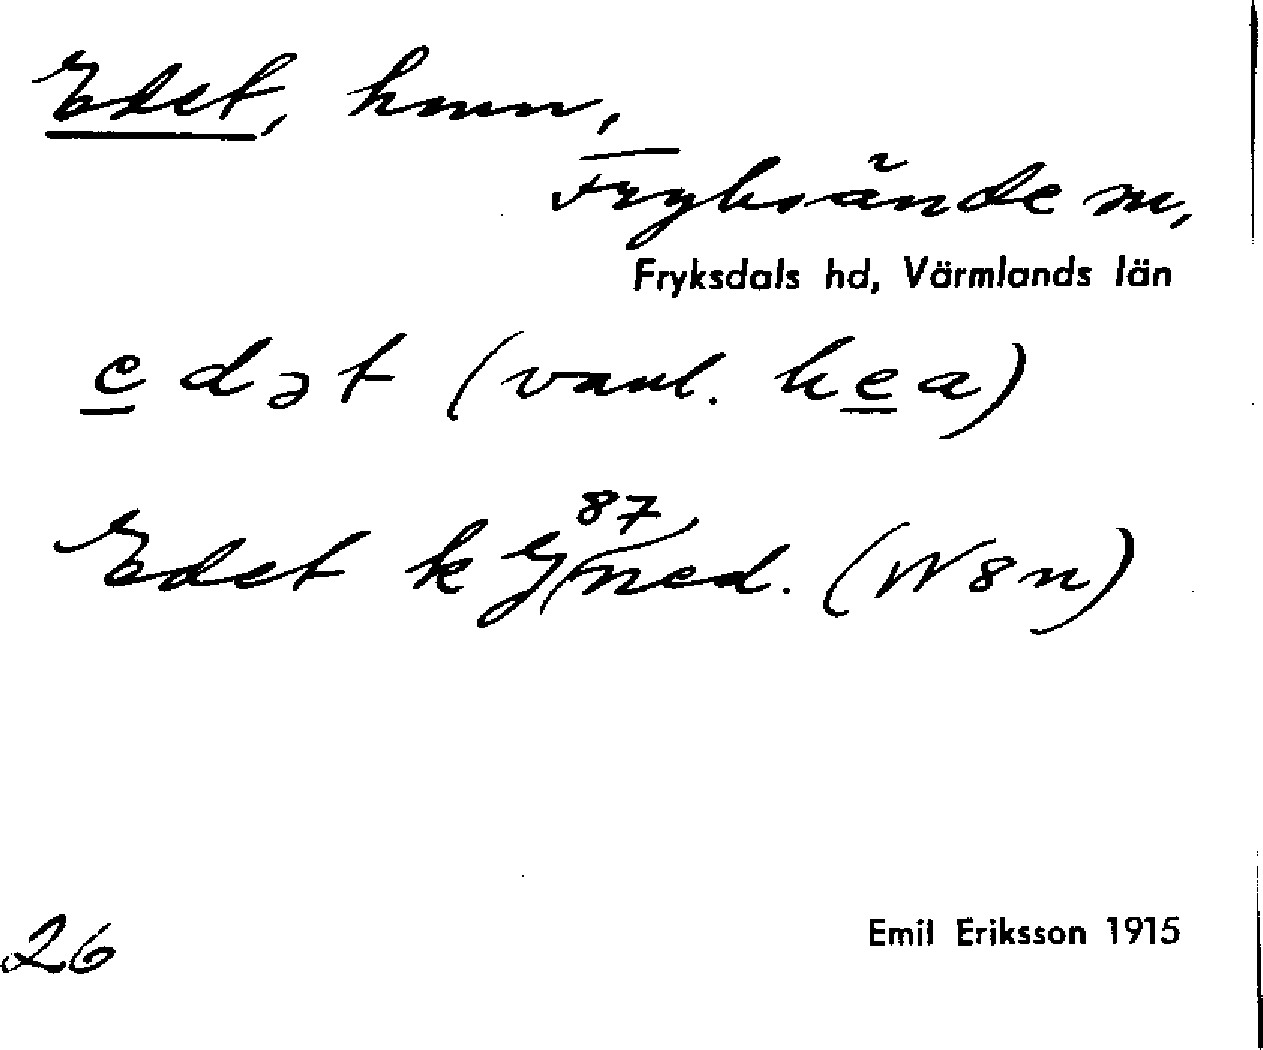 Edet, hmn,
Fryksände sn,
Fryksdals hd, Värmlands län
edət (vanl. hea)
87
Edet k G/ned. (W8n)
26
Emil Eriksson 1915